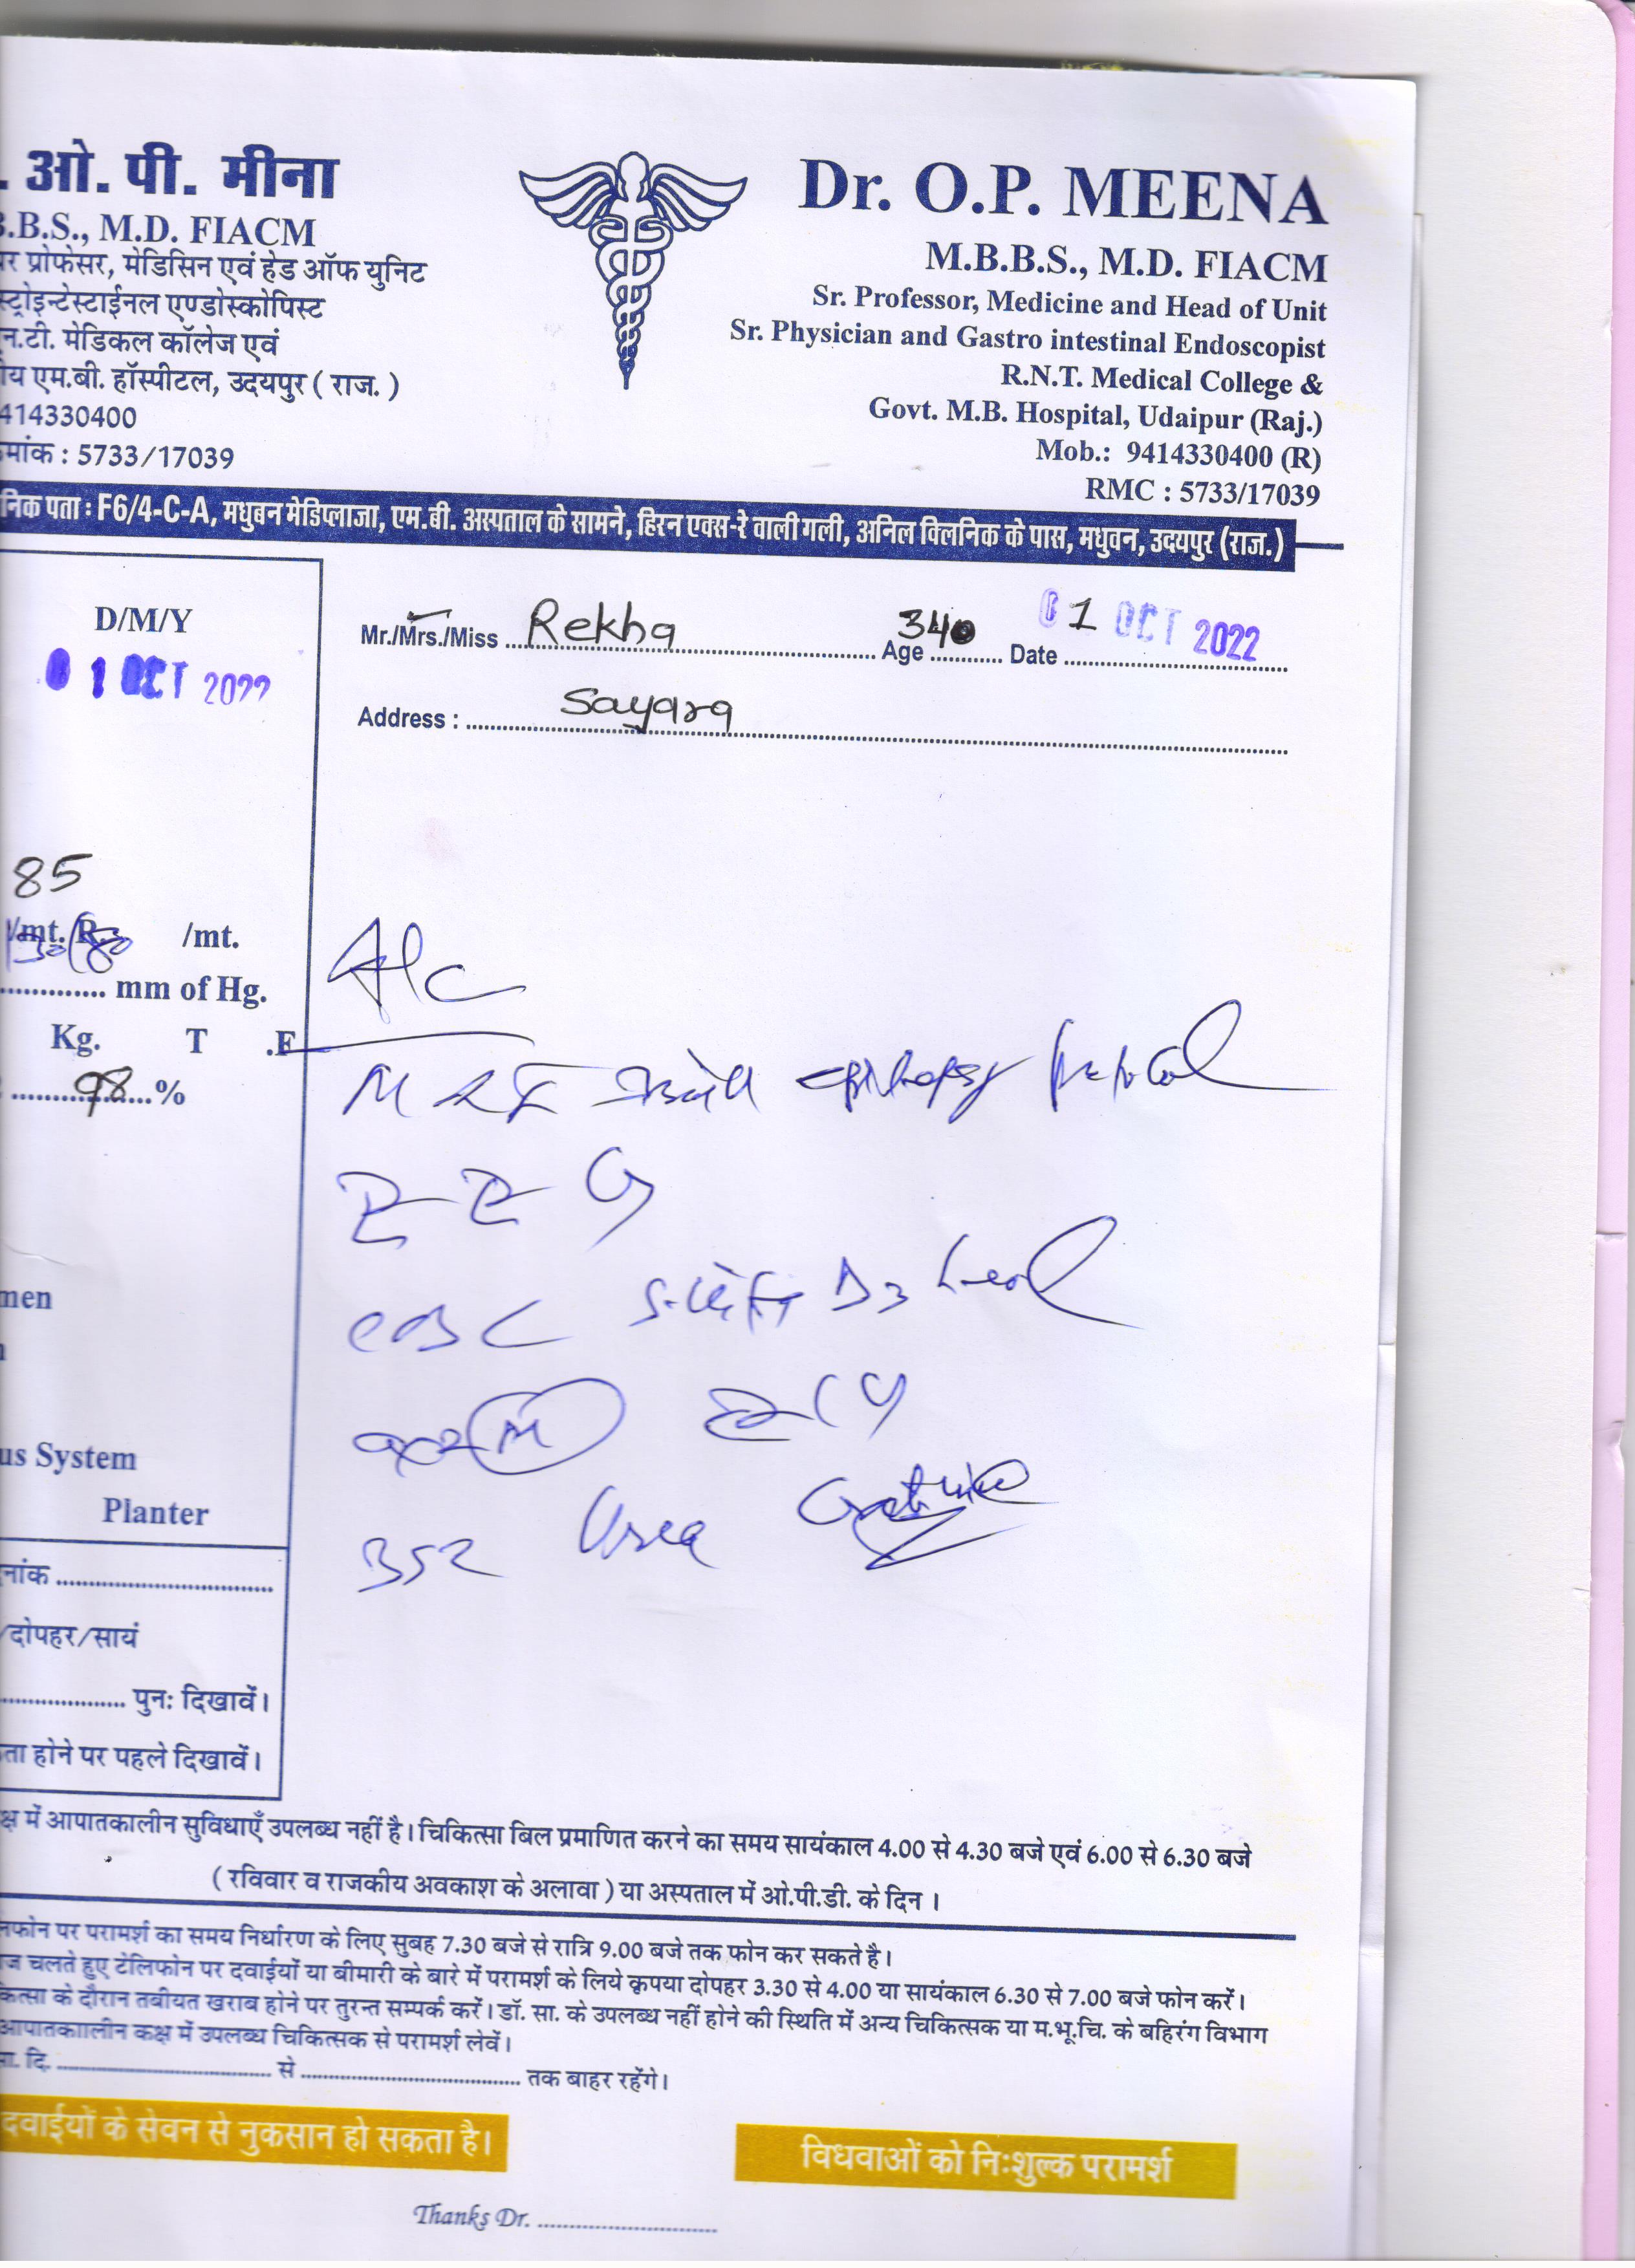 . ओ. पी. मीना
B.B.S., M.D. FIACM
यर प्रोफेसर, मेडिसिन एवं हेड ऑफ युनिट
स्ट्रोइन्टेस्टाईनल एण्डोस्कोपिस्ट
न.टी. मेडिकल कॉलेज एवं
ीय एम.बी. हॉस्पीटल, उदयपुर ( राज. )
414330400
मांक : 5733/17039
Dr. O.P. MEENA
M.B.B.S., M.D. FIACM
Sr. Professor, Medicine and Head of Unit
Sr. Physician and Gastro intestinal Endoscopist
R.N.T. Medical College &
Govt. M.B. Hospital, Udaipur (Raj.)
Mob.: 9414330400 (R)
RMC : 5733/17039
निक पता : F6/4-C-A, मधुबन मेडिप्लाजा, एम.बी. अस्पताल के सामने, हिरन एक्स-रे वाली गली, अनिल क्लिनिक के पास, मधुवन, उदयपुर (राज.)
D/M/Y
01 OCT 2022
Mr./Mrs./Miss Rekha Age 340 Date 01 OCT 2022
Address : Sayara
85
/mt. R. /mt.
130/80
mm of Hg.
Kg. T .F
98 %
men
us System
Planter
नांक
/दोपहर/सायं
पुनः दिखावें।
ता होने पर पहले दिखावें।
MRI epilepsy protocol
EEG
CBC D3 level
Urea
क्ष में आपातकालीन सुविधाएँ उपलब्ध नहीं है। चिकित्सा बिल प्रमाणित करने का समय सायंकाल 4.00 से 4.30 बजे एवं 6.00 से 6.30 बजे
( रविवार व राजकीय अवकाश के अलावा ) या अस्पताल में ओ.पी.डी. के दिन ।
नफोन पर परामर्श का समय निर्धारण के लिए सुबह 7.30 बजे से रात्रि 9.00 बजे तक फोन कर सकते है।
ाज चलते हुए टेलिफोन पर दवाईयों या बीमारी के बारे में परामर्श के लिये कृपया दोपहर 3.30 से 4.00 या सायंकाल 6.30 से 7.00 बजे फोन करें।
कित्सा के दौरान तबीयत खराब होने पर तुरन्त सम्पर्क करें। डॉ. सा. के उपलब्ध नहीं होने की स्थिति में अन्य चिकित्सक या म.भू.चि. के बहिरंग विभाग
आपातकाालीन कक्ष में उपलब्ध चिकित्सक से परामर्श लेवें।
सा. दि. से तक बाहर रहेंगे।
दवाईयों के सेवन से नुकसान हो सकता है।
विधवाओं को निःशुल्क परामर्श
Thanks Dr.